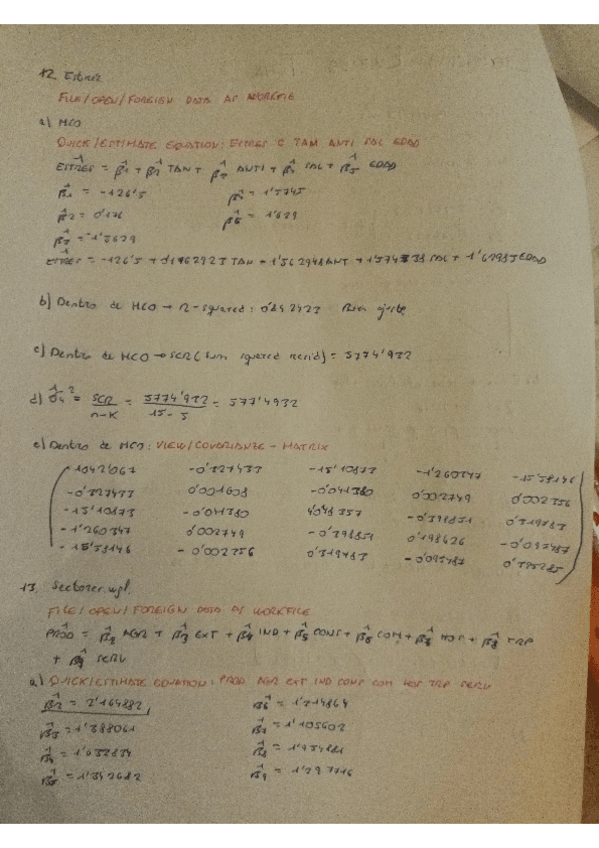 12. Estres
FILE/OPEN/FOREIGN DATA AS WORKFILE
a) MCO
QUICK/ESTIMATE EQUATION: ESTRES C TAM ANTI SAL EDAD
ESTRES^ = β̂1 + β̂2 TAM + β̂3 ANTI + β̂4 SAL + β̂5 EDAD
β̂1 = -126'5 β̂4 = 1'5745
β̂2 = 0'176 β̂5 = 1'629
β̂3 = -1'5629
ESTRES^ = -126'5 + 0'1762923 TAM - 1'562948 ANT + 1'574 SAL + 1'62983 EDAD
b) Dentro de MCO → R-squared: 0'842423 Buen ajuste
c) Dentro de MCO → SCR (Sum squared resid) = 5774'932
d) σ̂u² = SCR / n-K = 5774'932 / 15-5 = 577'4932
e) Dentro de MCO: VIEW/COVARIANZE - MATRIX
1042'067 -0'327433 -15'10873 -1'260347 -15'58146
-0'327433 0'001608 -0'041380 0'002749 0'002356
-15'10873 -0'041380 4'048357 -0'398851 0'319483
-1'260347 0'002749 -0'398851 0'198626 -0'095487
-15'58146 -0'002356 0'319483 -0'095487 0'385285
13. Sectores.wfl.
FILE/OPEN/FOREIGN DATA AS WORKFILE
PROD^ = β̂2 AGR + β̂3 EXT + β̂4 IND + β̂5 CONS + β̂6 COM + β̂7 HOS + β̂8 TRP
+ β̂9 SERV
a) QUICK/ESTIMATE EQUATION: PROD AGR EXT IND CONS COM HOS TRP SERV
β̂2 = 2'164882 β̂6 = 1'314864
β̂3 = 1'388061 β̂7 = 1'105602
β̂4 = 1'432834 β̂8 = 1'454181
β̂5 = 1'342682 β̂9 = 1'297716